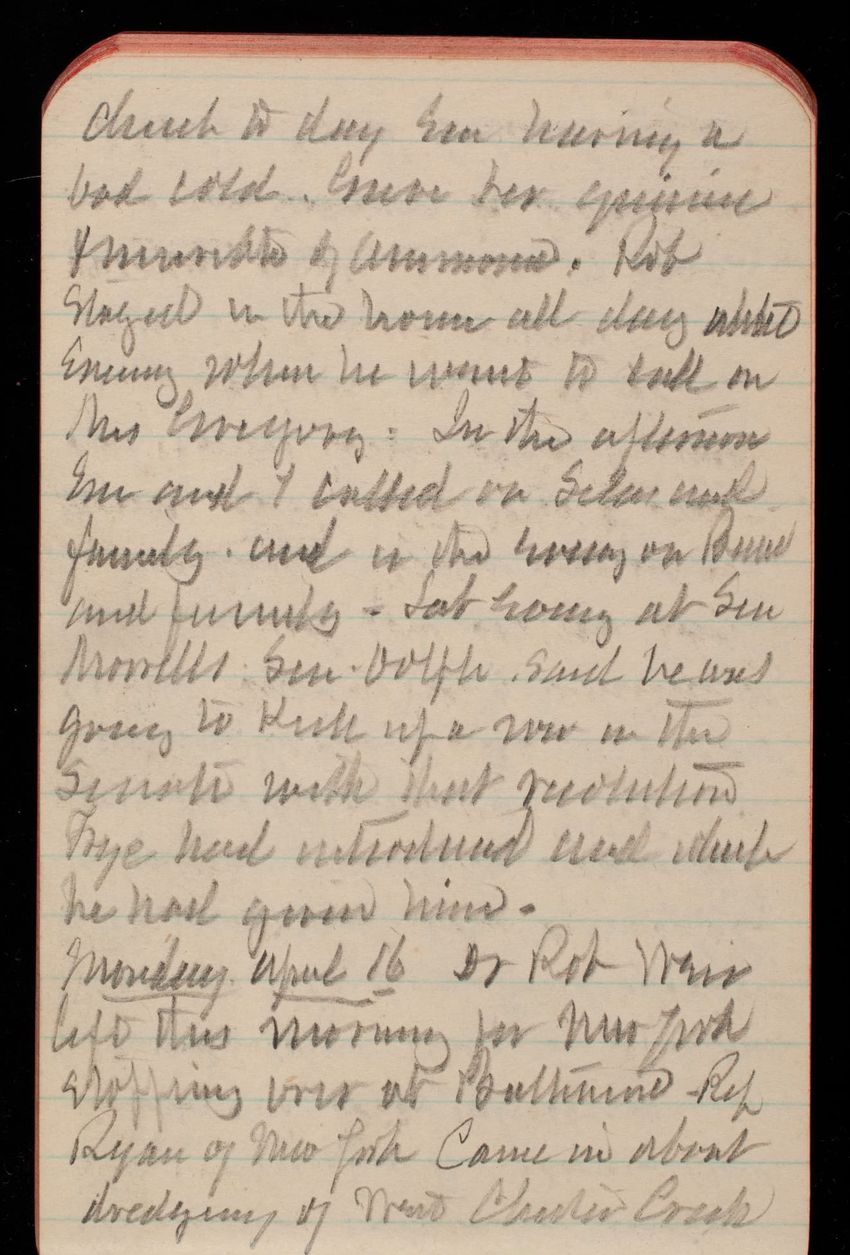 church to day Em having a
bad cold. Gave her quinine
& muriate of ammonia. Rob
Stayed in the house all day until
Evening when he went to call on
Mrs Gregory. In the afternoon
Em and I called on Selar and
family. and in the evening on
and family - Sat Evening at Sen
Morrells Sen. Dolph. said he was
going to Kick up a row in the
Senate with that resolution
Frye had introduced and which
he had given him.
Monday April 16 Dr Rob Weir
left this morning for New York
stopping over at Baltimore Rep
Ryan of New York Came in about
dredging of West Chester Creek